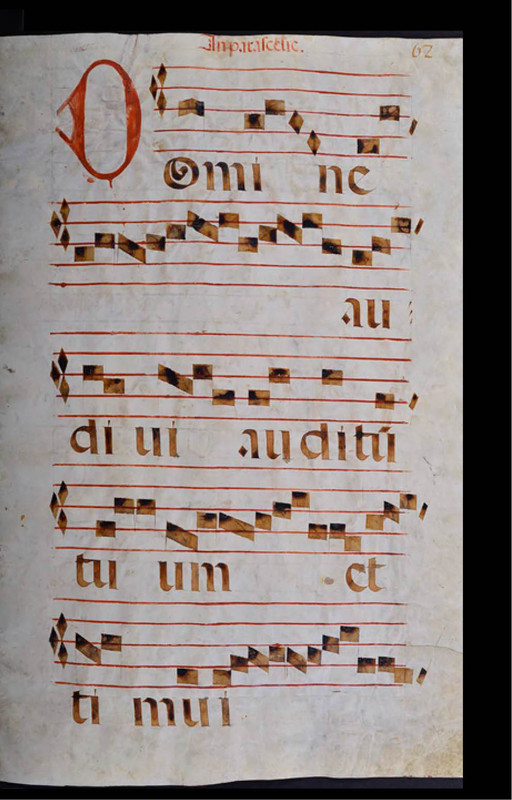 In parasceue.
62
Domi ne
au
di ui auditū
tu um et
ti mui